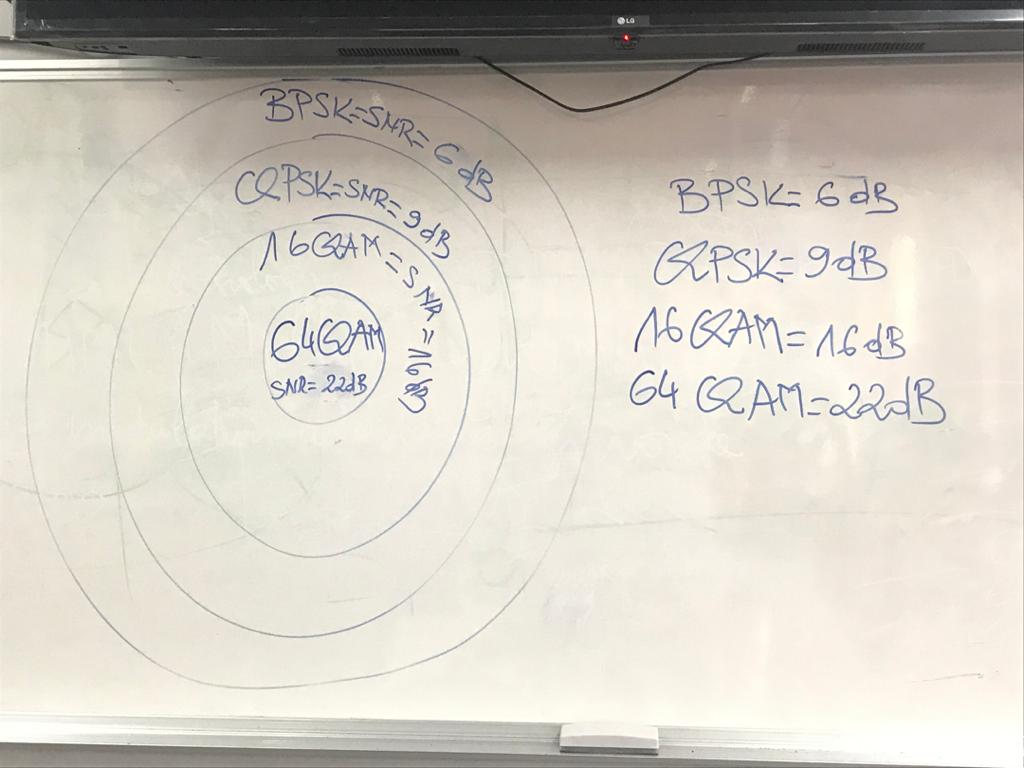 LG
BPSK=SNR=6dB
QPSK=SNR=9dB
16QAM=SNR=16dB
64QAM
SNR=22dB
BPSK=6dB
QPSK=9dB
16QAM=16dB
64 QAM=22dB